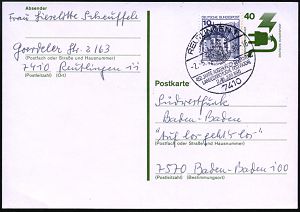 Absender
Frau Lieselotte Scheuffele
Goerdeler Str. 2163
(Postfach oder Straße und Hausnummer)
7410 Reutlingen 11
(Postleitzahl) (Ort)
10
DEUTSCHE BUNDESPOST
40
REUTLINGEN
7410
Postkarte
Südwestfunk
Baden-Baden
"Auf los geht's los"
(Postfach oder Straße und Hausnummer)
7570 Baden-Baden 100
(Postleitzahl) (Bestimmungsort)